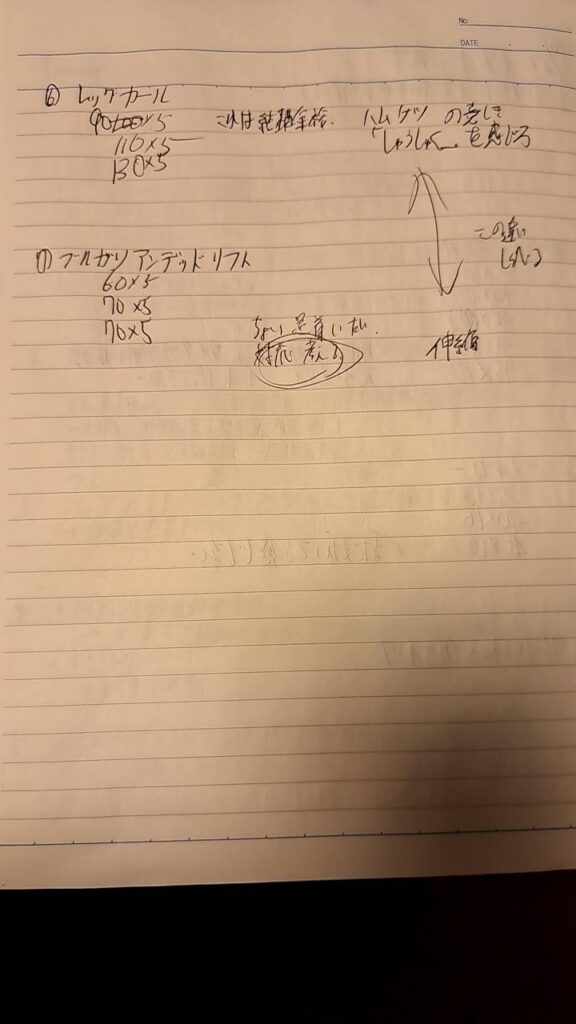 No.
DATE
⑥ レッグカール
90×5
これは
ハムケツ の
「しゅうしゅく」を感じろ
110×5
130×5
この違い
⑦ ブルガリアンデッドリフト
60×5
70×5
70×5
ちょい足首いたい.
対応考える
伸縮